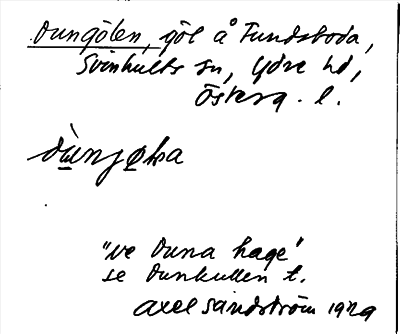 Dungölen, göl å Fundsboda,
Svinhults sn, Ydre hd,
Österg. l.
dùnjøla
"ve Duna hage"
se Dunkullen t.
Axel Sandström 1929